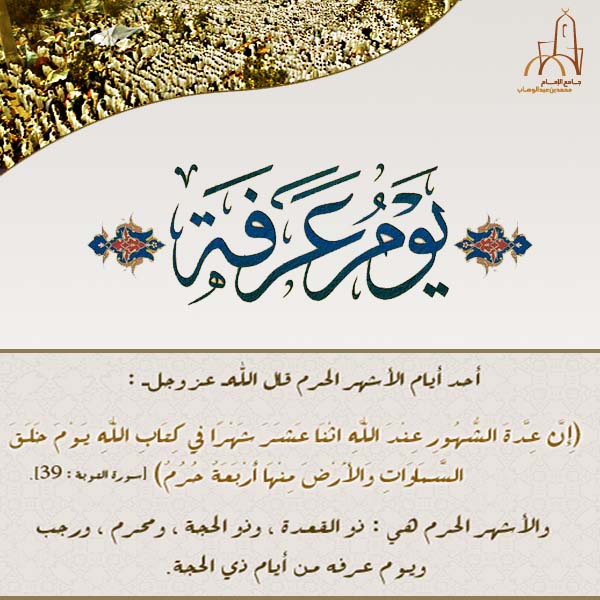 جامع الإمام
محمد بن عبدالوهاب
يَوْمُ عَرَفَة
أحد أيام الأشهر الحرم قال الله عز وجل :
(إِنَّ عِدَّةَ الشُّهُورِ عِنْدَ اللَّهِ اثْنَا عَشَرَ شَهْرًا فِي كِتَابِ اللَّهِ يَوْمَ خَلَقَ
السَّمَاوَاتِ وَالْأَرْضَ مِنْهَا أَرْبَعَةٌ حُرُمٌ) [سورة التوبة : 39].
والأشهر الحرم هي : ذو القعدة ، وذو الحجة ، ومحرم ، ورجب
ويوم عرفه من أيام ذي الحجة.